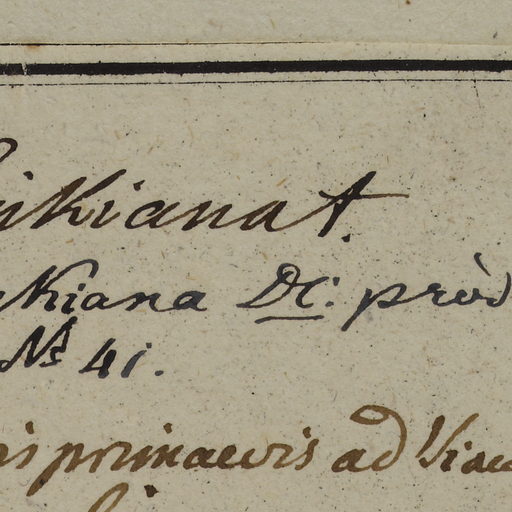 ikiana t.
kiana DC. prod
No 41.
is primaevis ad Via